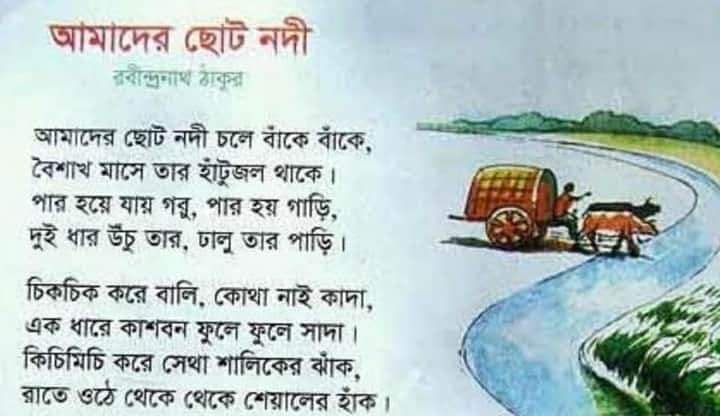 আমাদের ছোট নদী
রবীন্দ্রনাথ ঠাকুর
আমাদের ছোট নদী চলে বাঁকে বাঁকে,
বৈশাখ মাসে তার হাঁটুজল থাকে।
পার হয়ে যায় গরু, পার হয় গাড়ি,
দুই ধার উঁচু তার, ঢালু তার পাড়ি।
চিকচিক করে বালি, কোথা নাই কাদা,
এক ধারে কাশবন ফুলে ফুলে সাদা।
কিচিমিচি করে সেথা শালিকের ঝাঁক,
রাতে ওঠে থেকে থেকে শেয়ালের হাঁক।